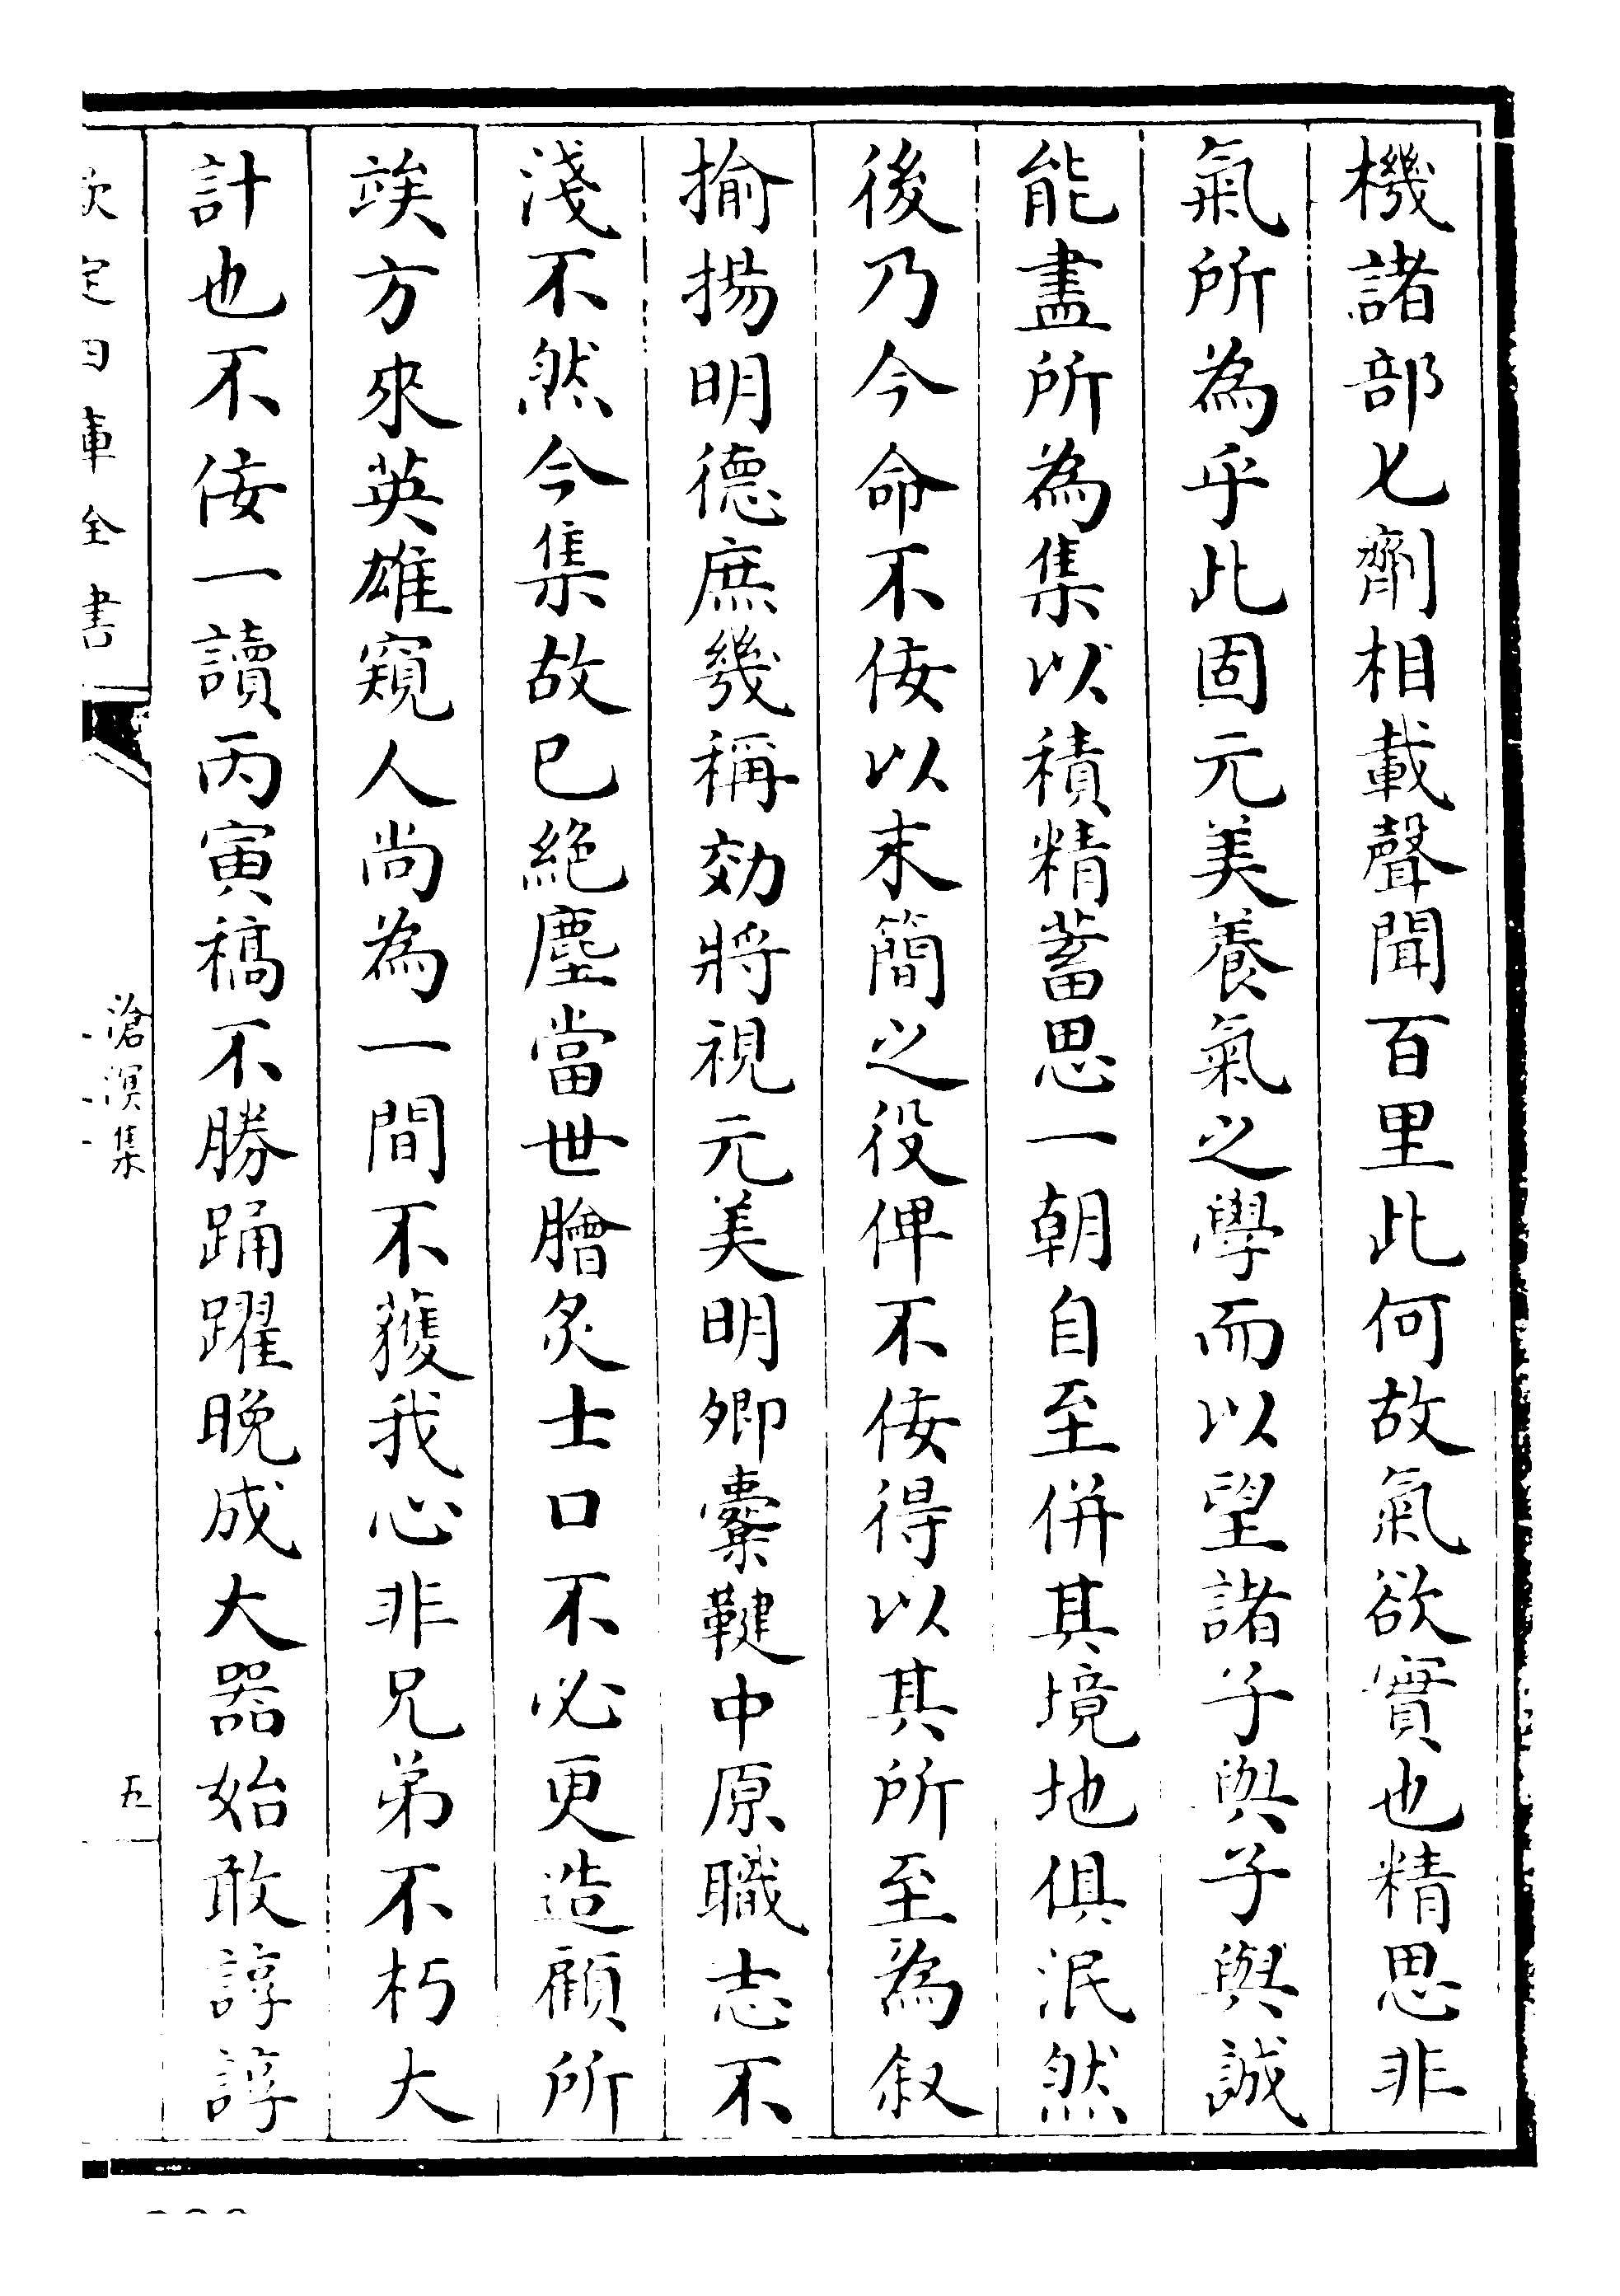 機諸部匕劑相載聲聞百里此何故氣欲實也精思非
氣所為乎此固元美養氣之學而以望諸子與子與誠
能盡所為集以積精蓄思一朝自至併其境地俱泯然
後乃今命不佞以末簡之役俾不佞得以其所至為叙
揄揚明德庶幾稱効將視元美明卿櫜鞬中原職志不
淺不然今集故已絶塵當世膾炙士口不必更造顧所
竢方來英雄窺人尚為一間不獲我心非兄弟不朽大
計也不佞一讀丙寅稿不勝踊躍晚成大器始敢諄諄
欽定四庫全書
滄溟集
五